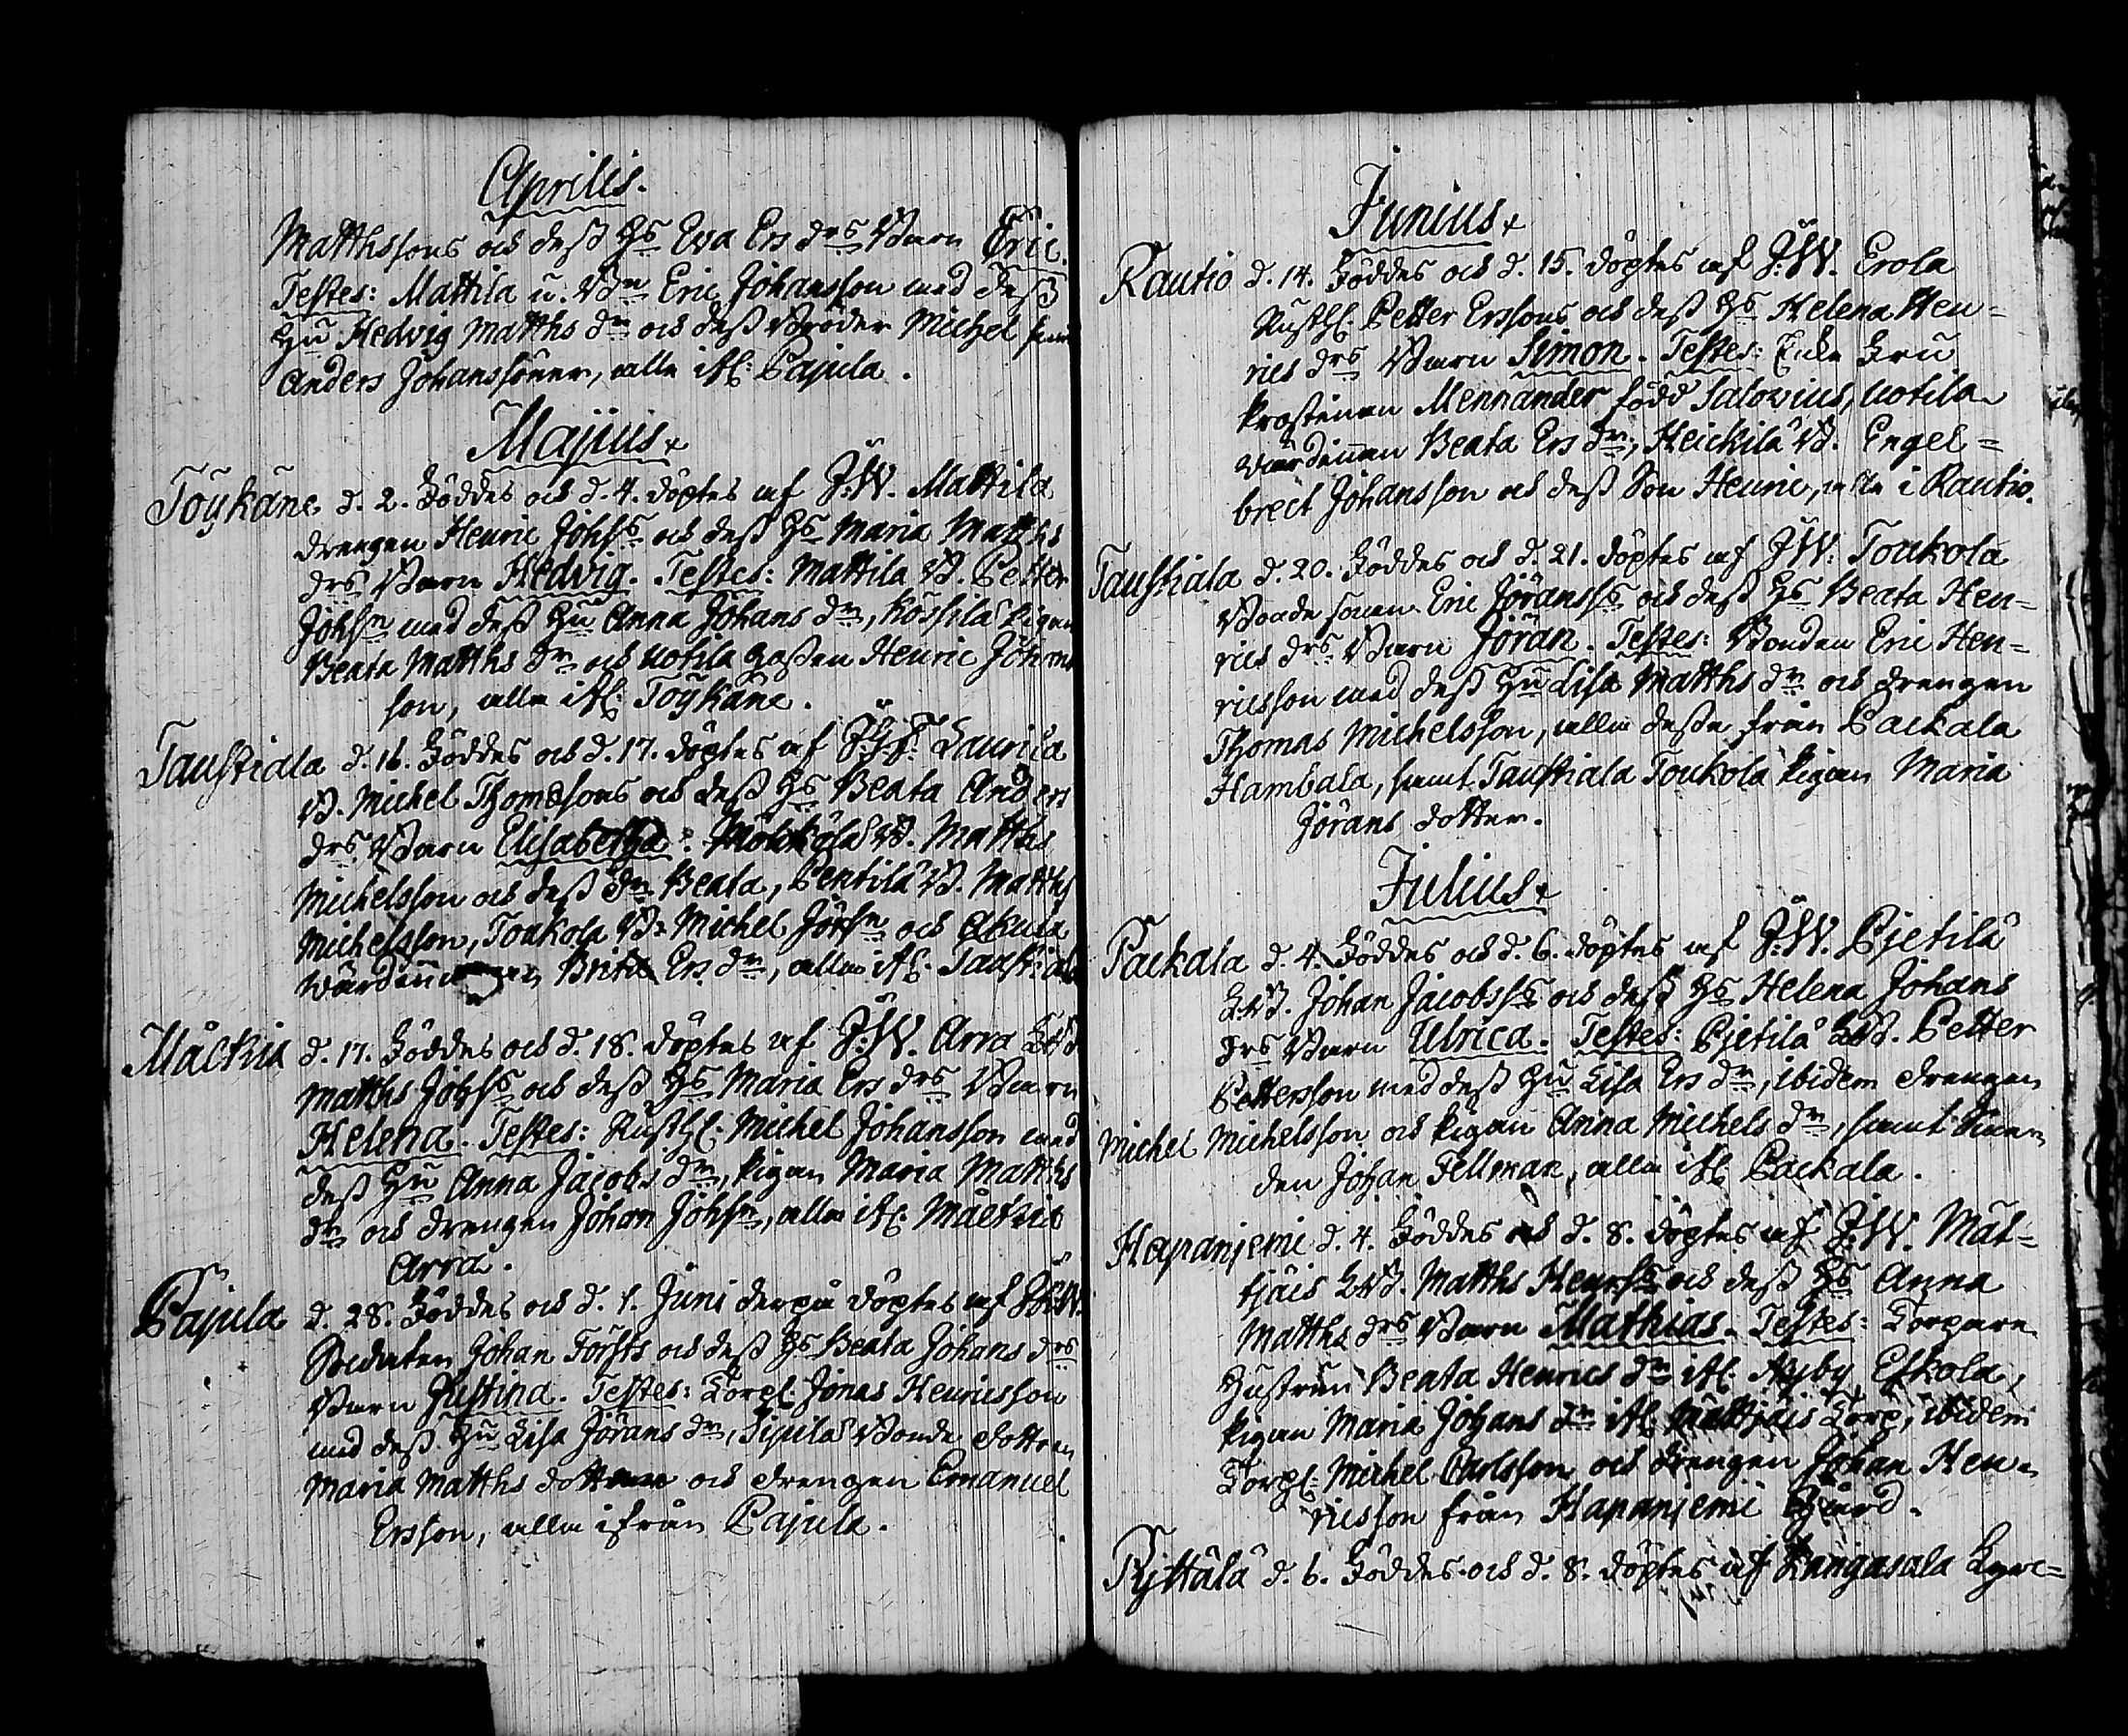 Aprilis.
Matthssons och dess Hs Eva Ers drs Barn Eric.
Testes: Mattila u. Bdn Eric Johansson med dess
Hu Hedvig Matths dr och dess Bröder Michel samt
Anders Johanssöner, alla ifl: Pajula.
Majus.
Toykäne d. 2. Föddes och d. 4. döptes af J:W. Mattila
drengen Henric Johss och dess Hs Maria Matths
drs Barn Hedvig. Testes: Mattila B. Petter
Johsn med dess Hu Anna Johans dr, Kossila pigan
Beata Matths dr och Uotila gossen Henric Johans
son, alla ifl: Toykäne.
Taustiala d. 16. Föddes och d. 17. döptes af Laurila
B. Michel Thomæsons och dess Hs Beata Anders
drs Barn Elisabetha. B. Matths
Michelsson och dess dr Beata, Pentilä B. Matths
Michelsson, Toukola B. Michel Jörsn och Akula
Wärdinnan Brita Ers dr, alla ifl. Taustiala
Mäckiä d. 17. Föddes och d. 18. döptes af J:W. Arra
Matths Johss och dess Hs Maria Ers drs Barn
Helena. Testes: Rusth: Michel Johansson med
dess Hu Anna Jacobs dr, pigan Maria Matths
dr och drengen Johan Johsn, alla ifl: Mäckiä
Arra.
Pajula d. 28. Föddes och d. 1. Juni derpå döptes af
Soldaten Johan Forsts och dess Hs Beata Johans drs
Barn Justina. Testes: Torp: Jonas Henricsson
med dess Hu Lisa Jörans dr, Sipilä Bonde dottren
Maria Matths dotter och drengen Emanuel
Ersson, alla ifrån Pajula.
Junius.
Rautio d. 14. Föddes och d. 15. döptes af J:W. Erola
Rusth: Petter Erssons och dess Hs Helena Hen=
rics drs Barn Simon. Testes: Enke Fru
Prostinnan Mennander född Salovius, Uotila
värdinnan Beata Ers dr, Heickilä B. Engel=
brect Johansson och dess Son Henric, alla i Rautio.
Taustiala d. 20. Föddes och d. 21. döptes af J:W: Toukola
Bonde sonen Eric Jöranss och dess Hs Beata Hen=
rics drs Barn Jöran. Testes: Bonden Eric Hen=
ricsson med dess Hu Lisa Matths dr och drengen
Thomas Michelsson, alla dessa från Packala
Hambala, samt Taustiala Toukola pigan Maria
Jörans dotter.
Julius.
Packala d. 4. Föddes och d. 6. döptes af J:W. Pjetilä
Johan Jacobss och dess Hs Helena Johans
drs Barn Ulrica. Testes: Pjetilä Petter
Pettersson med dess Hu Lisa Ers dr, ibidem drengen
Michel Michelsson och pigan Anna Michels dr, samt
den Johan Fellman, alla ifl Packala.
Hapaniemi d. 4. Föddes och d. 8. döptes af J:W. Mat=
tjäis Matths Henrss och dess Hs Anna
Matths drs Barn Mathias. Testes: Torpare
Hustrun Beata Henrics dr ifl: Nyby Eskola,
pigan Maria Johans dr ifl Mattjäis Torp, ibidem
Torp: Michel Carlsson och drengen Johan Hen=
ricsson från Hapaniemi Gård.
Pyttälä d. 6. Föddes och d. 8. döptes af Kangasala